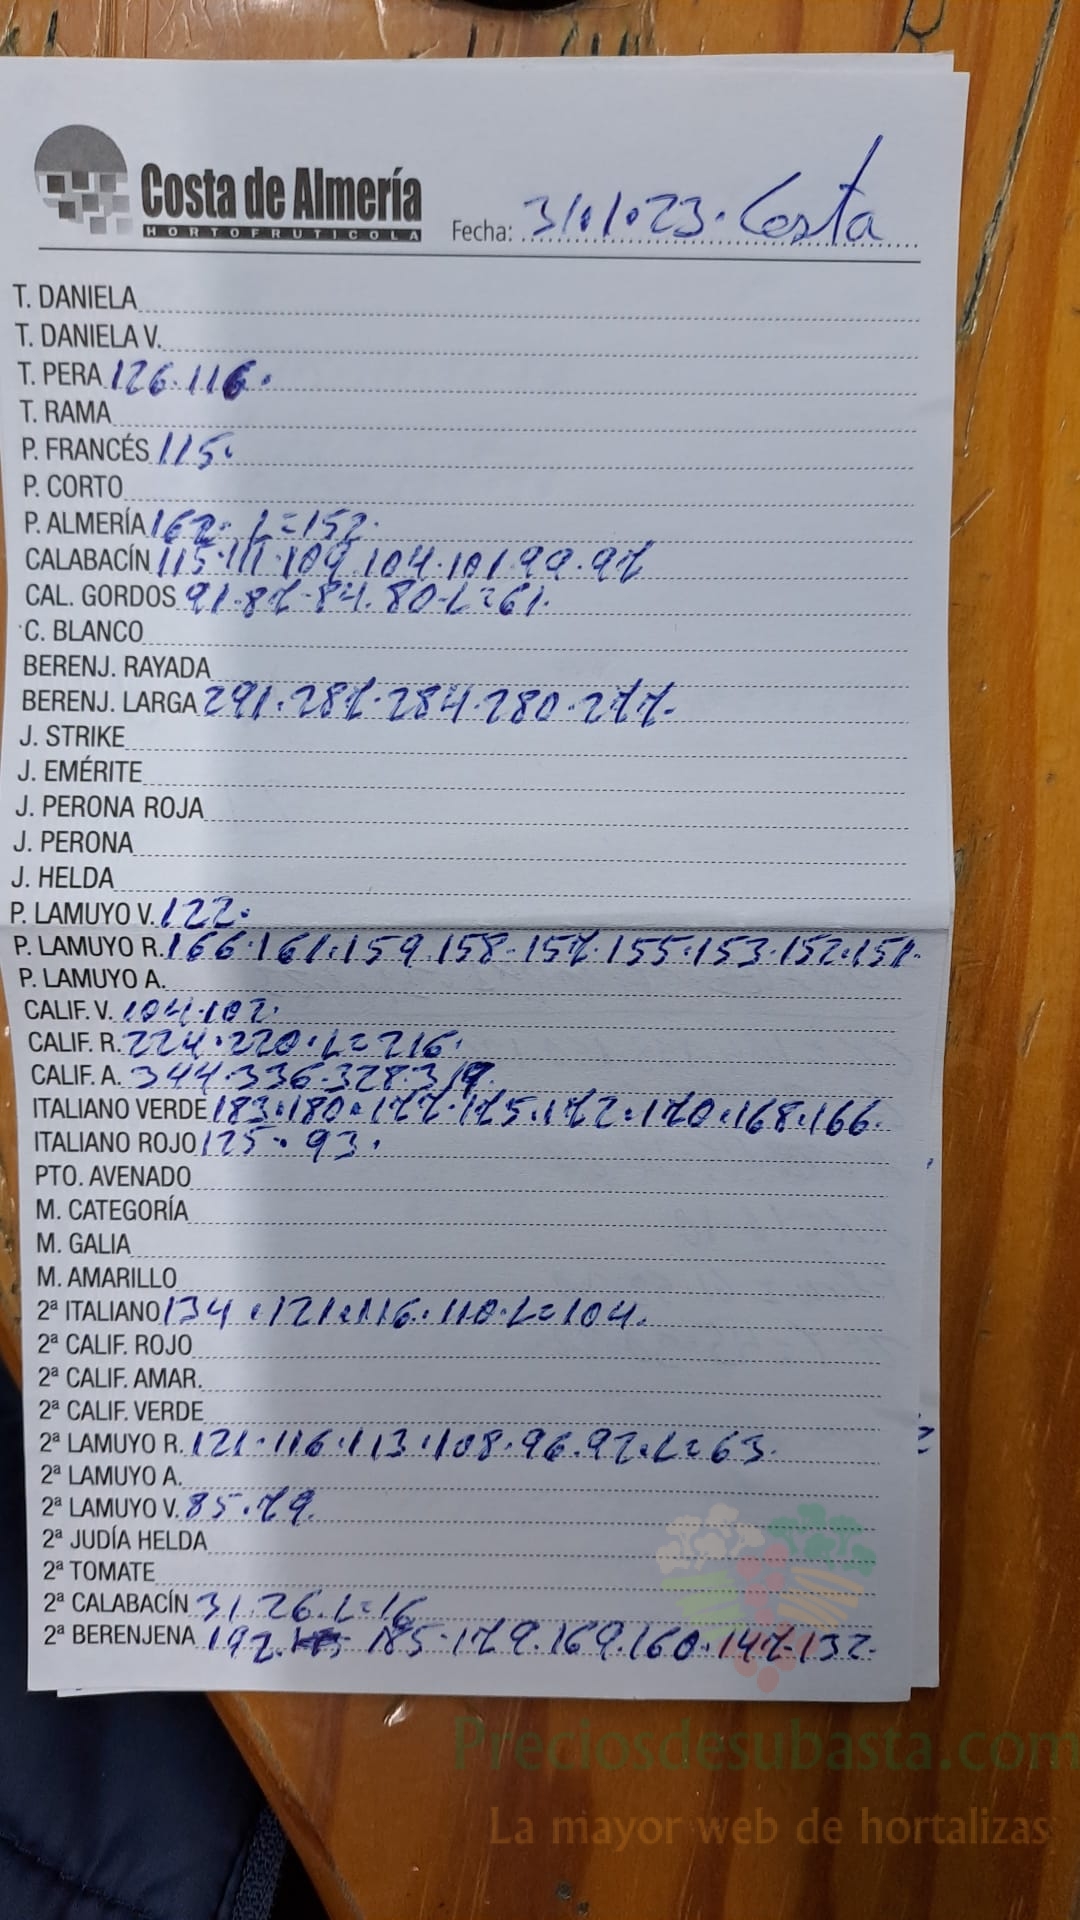 Costa de Almería
HORTOFRUTICOLA
Fecha: 31.1.23. Costa
T. DANIELA
T. DANIELA V.
T. PERA 126.116.
T. RAMA
P. FRANCÉS 115.
P. CORTO
P. ALMERÍA 162. L=152.
CALABACÍN 115.111.109.104.101.99.97
CAL. GORDOS 91.87.84.80.L=61.
C. BLANCO
BERENJ. RAYADA
BERENJ. LARGA 291.287.284.280.277.
J. STRIKE
J. EMÉRITE
J. PERONA ROJA
J. PERONA
J. HELDA
P. LAMUYO V. 122.
P. LAMUYO R. 166.161.159.158.157.155.153.152.151.
P. LAMUYO A.
CALIF. V. 104.102.
CALIF. R. 224.220.L=216.
CALIF. A. 344.336.328.319.
ITALIANO VERDE 183.180.177.175.172.170.168.166.
ITALIANO ROJO 125. 93.
PTO. AVENADO
M. CATEGORÍA
M. GALIA
M. AMARILLO
2ª ITALIANO 134.121.116.110.L=104.
2ª CALIF. ROJO
2ª CALIF. AMAR.
2ª CALIF. VERDE
2ª LAMUYO R. 121.116.113.108.96.92.L=63.
2ª LAMUYO A.
2ª LAMUYO V. 85.79.
2ª JUDÍA HELDA
2ª TOMATE
2ª CALABACÍN 31.26.L=16
2ª BERENJENA 192. 185.179.169.160.147.132.
Preciosdesubasta.com
La mayor web de hortalizas